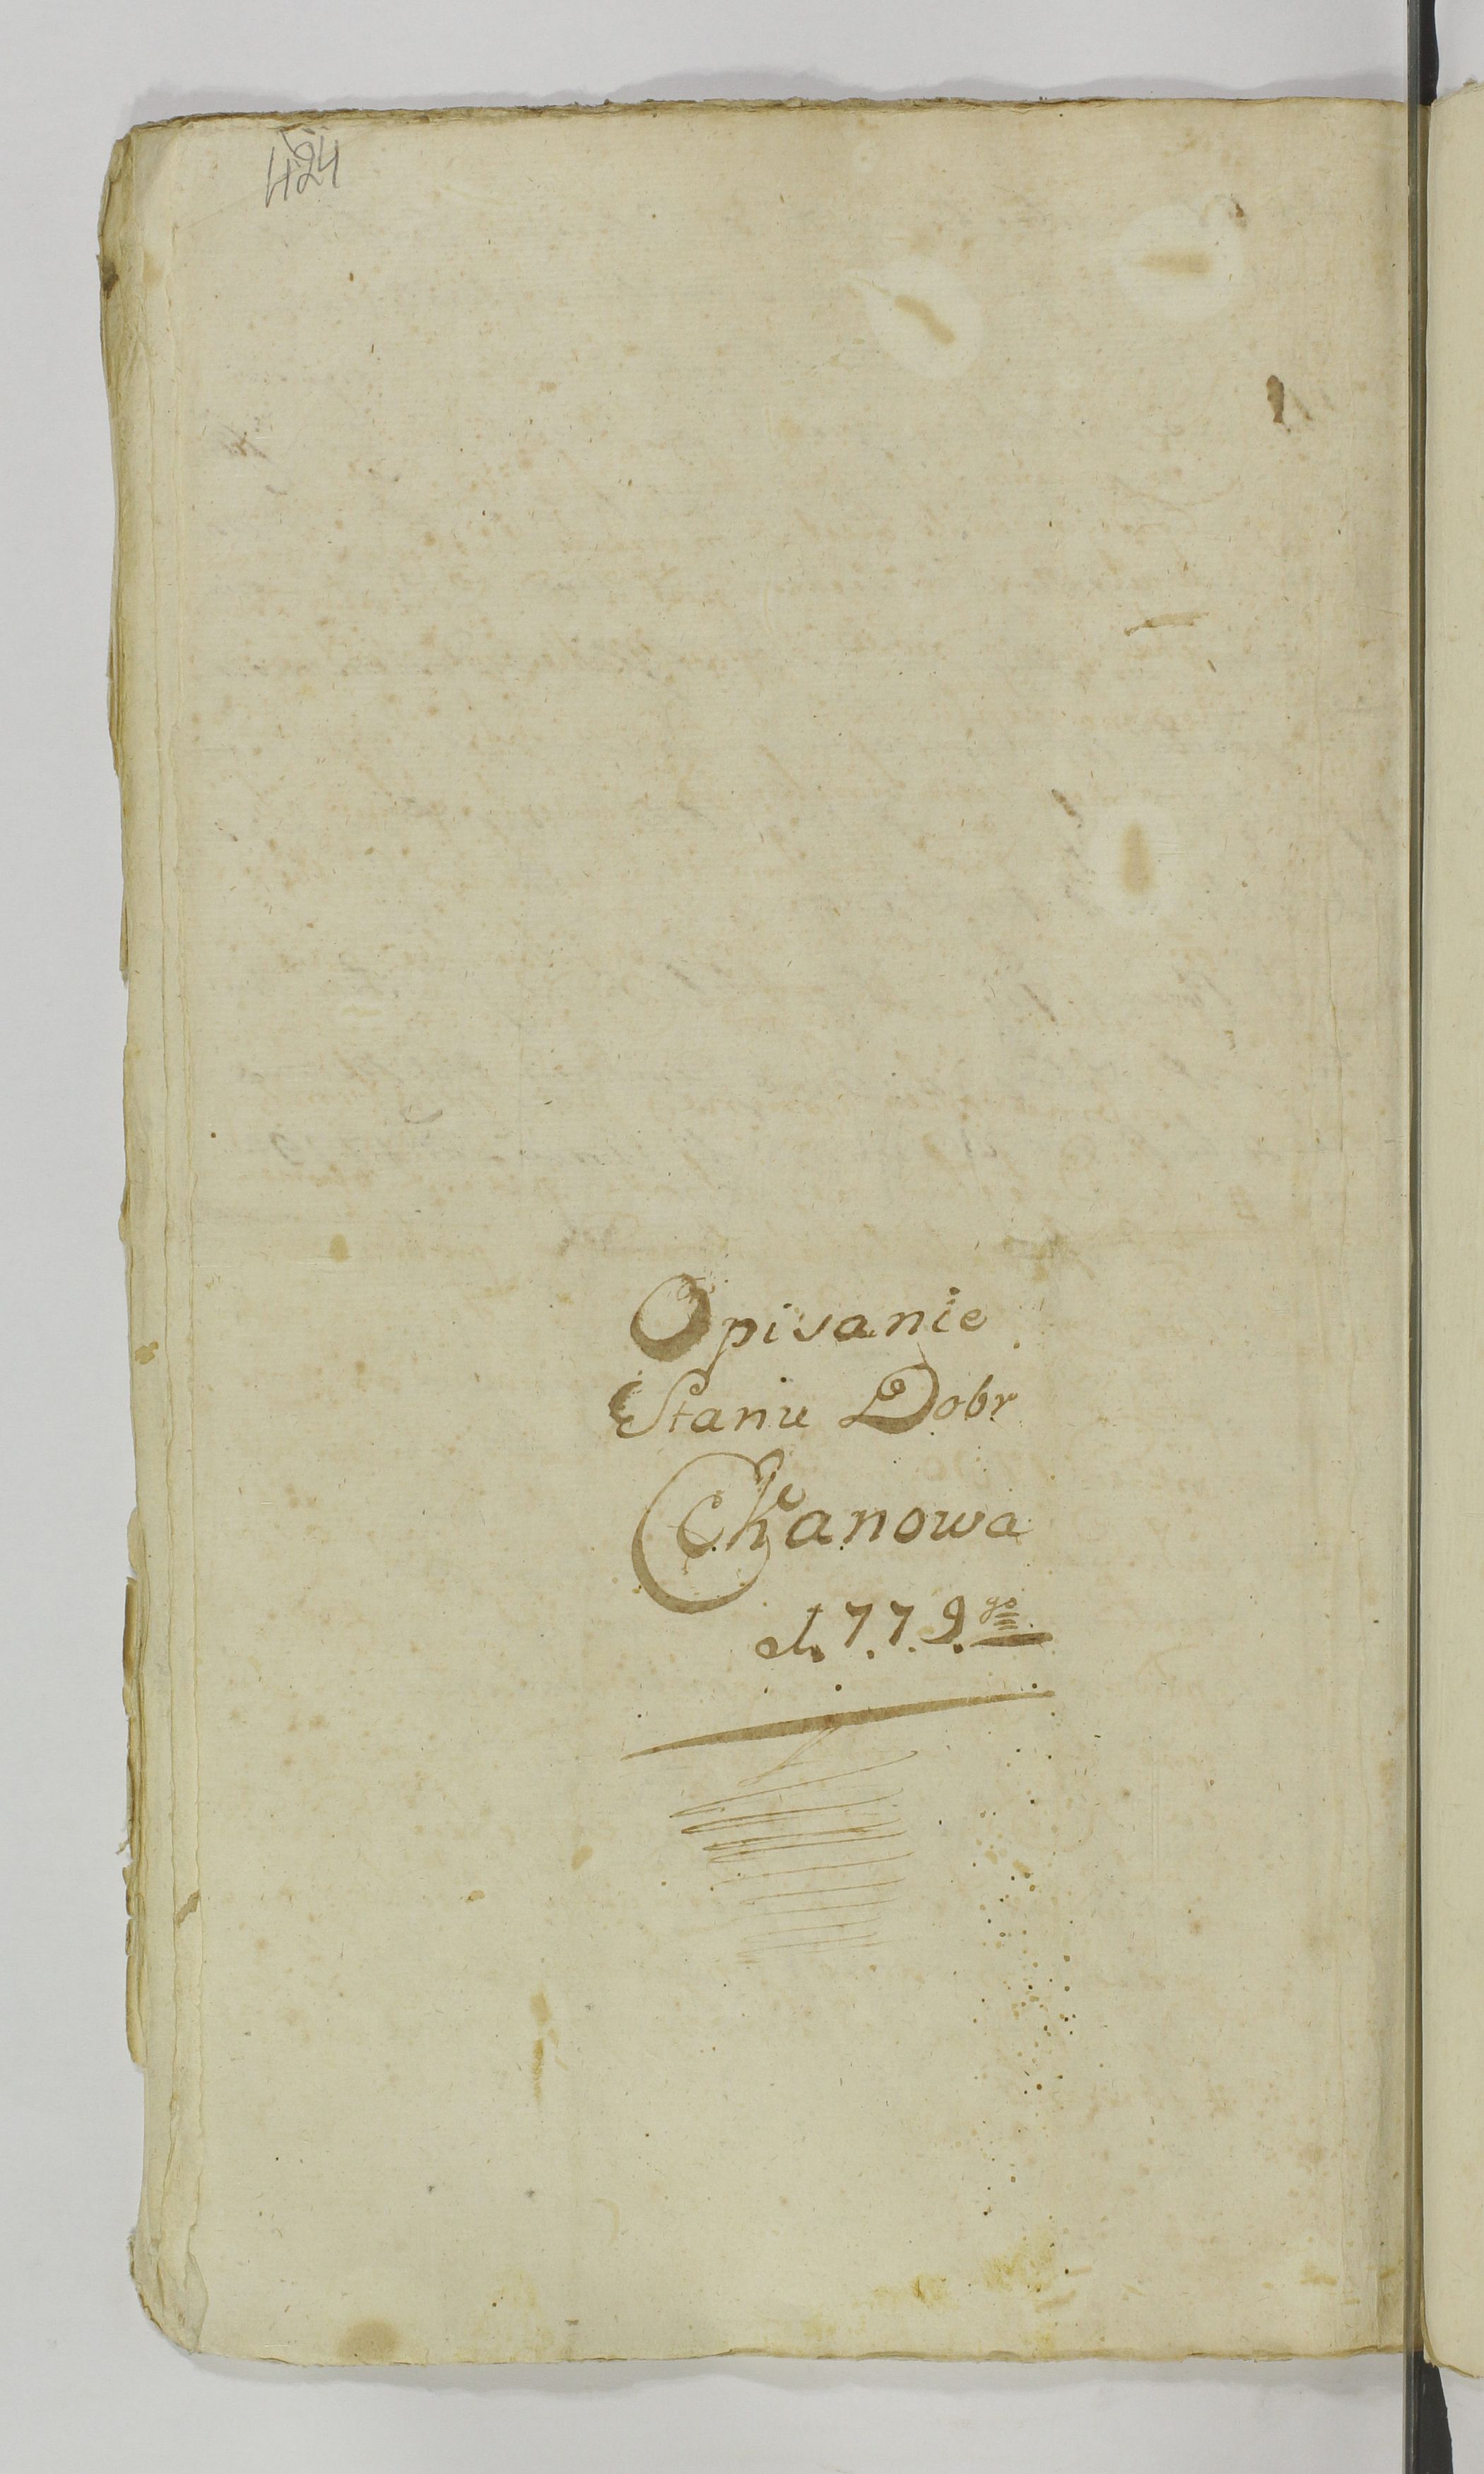 424
Opisanie
Stanu Dobr
Chanowa
d. 779go